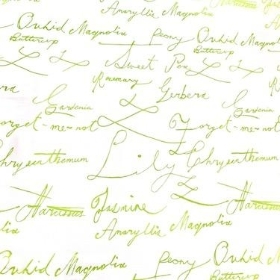 Amaryllis Magnolia
Orchid Magnolia Peony Orchid
Buttercup Buttercup
Sweet Pea
Rosemary
Gerbera
Gardenia Gardenia
Forget-me-not Forget-me-not
Chrysanthemum Lily Chrysanthemum
Narcissus Jasmine Narcissus
Amaryllis Magnolia
Orchid Magnolia Peony Orchid
Buttercup Buttercup